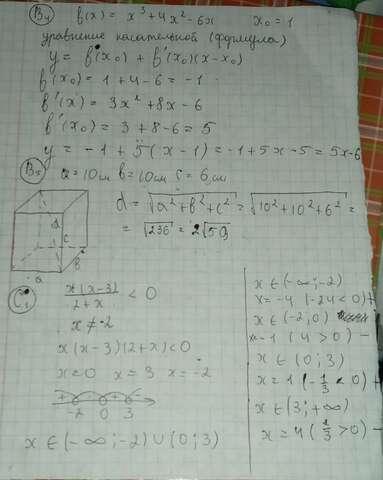 B4 f(x) = x³ + 4x² - 6x x₀ = 1
уравнение касательной (формула)
y = f(x₀) + f'(x₀)(x - x₀)
f(x₀) = 1 + 4 - 6 = -1
f'(x) = 3x² + 8x - 6
f'(x₀) = 3 + 8 - 6 = 5
y = -1 + 5(x - 1) = -1 + 5x - 5 = 5x - 6
B5 a = 10см b = 10см c = 6см
d = √a² + b² + c² = √10² + 10² + 6² =
= √236 = 2√59
d
c
b
a
C1 x(x-3)/2+x < 0
x ≠ -2
x(x-3)(2+x) < 0
x = 0 x = 3 x = -2
+ - + -
-2 0 3
x ∈ (-∞; -2) ∪ (0; 3)
x ∈ (-∞; -2)
x = -4 (-14 < 0) +
x ∈ (-2; 0)
x = -1 (4 > 0) -
x ∈ (0; 3)
x = 1 (-1/3 < 0) +
x ∈ (3; +∞)
x = 4 (2/3 > 0) -